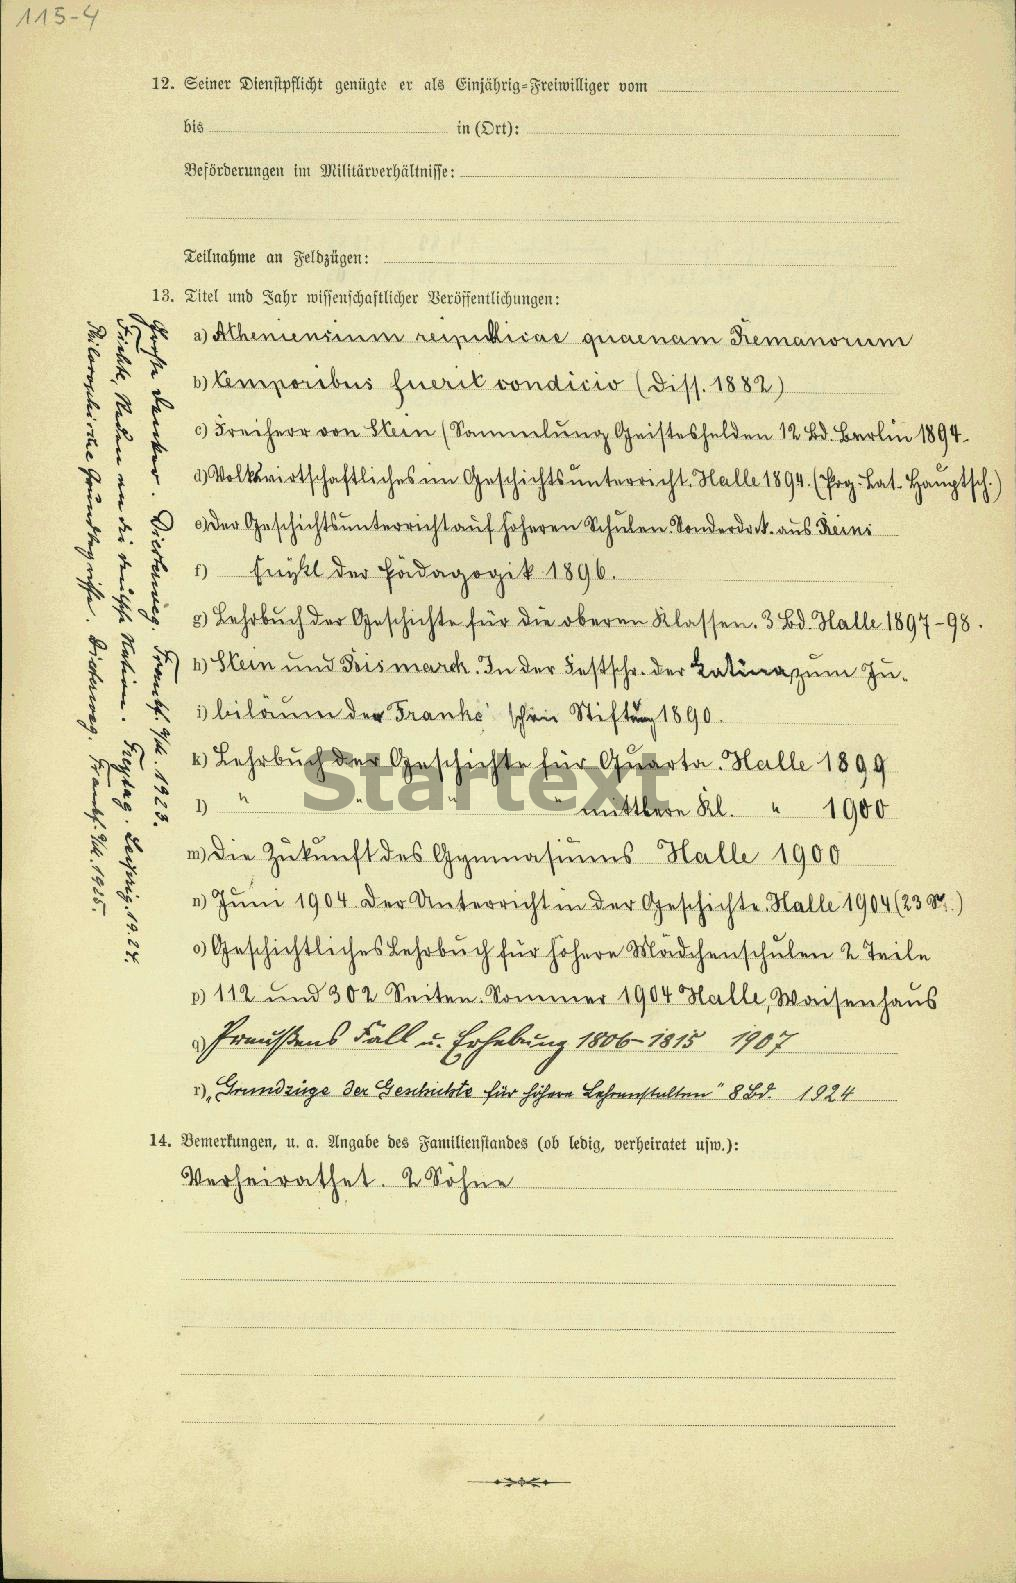 115-4
12. Seiner Dienstpflicht genügte er als Einjährig-Freiwilliger vom
bis in (Ort):
Beförderungen im Militärverhältnisse:
Teilnahme an Feldzügen:
13. Titel und Jahr wissenschaftlicher Veröffentlichungen:
a) Atheniensium reipublicae quaenam Romanorum
b) temporibus fuerit condicio (Diss. 1882)
c) Freiherr von Stein (Sammlung Geisteshelden 12 Bd. Berlin 1894.
d) Volkswirtschaftliches im Geschichtsunterricht. Halle 1894. (Prg. Lat. Hauptsch.)
e) Der Geschichtsunterricht auf höheren Schulen. Sonderdrck. aus Reins
f) Enzykl der Pädagogik 1896.
g) Lehrbuch der Geschichte für die oberen Klassen. 3 Bd. Halle 1897-98.
h) Stein und Bismarck. In der Festschr. der Latina zum Ju-
i) biläum der Franke'schen Stiftung 1890.
k) Lehrbuch der Geschichte für Quarta. Halle 1899
l) " " " " mittlere Kl. " 1900
m) Die Zukunft des Gymnasiums Halle 1900
n) Juni 1904 Der Unterricht in der Geschichte. Halle 1904 (23 )
o) Geschichtliches Lehrbuch für höhere Mädchenschulen 2 Teile
p) 112 und 302 Seiten. Sommer 1904 Halle, Waisenhaus
q) Preußens Fall u. Erhebung 1806-1815 1907
r) „Grundzüge der Geschichte für höhere Lehranstalten" 8 Bd. 1924
Große Denker. Diesterweg. Frankf. a/M. 1923.
Fichte, Reden an die deutsche Nation. Freytag. Leipzig. 1924.
Philosophische Grundbegriffe. Diesterweg. Frankf. a/M. 1925.
14. Bemerkungen, u. a. Angabe des Familienstandes (ob ledig, verheiratet usw.):
Verheirathet. 2 Söhne
Startext